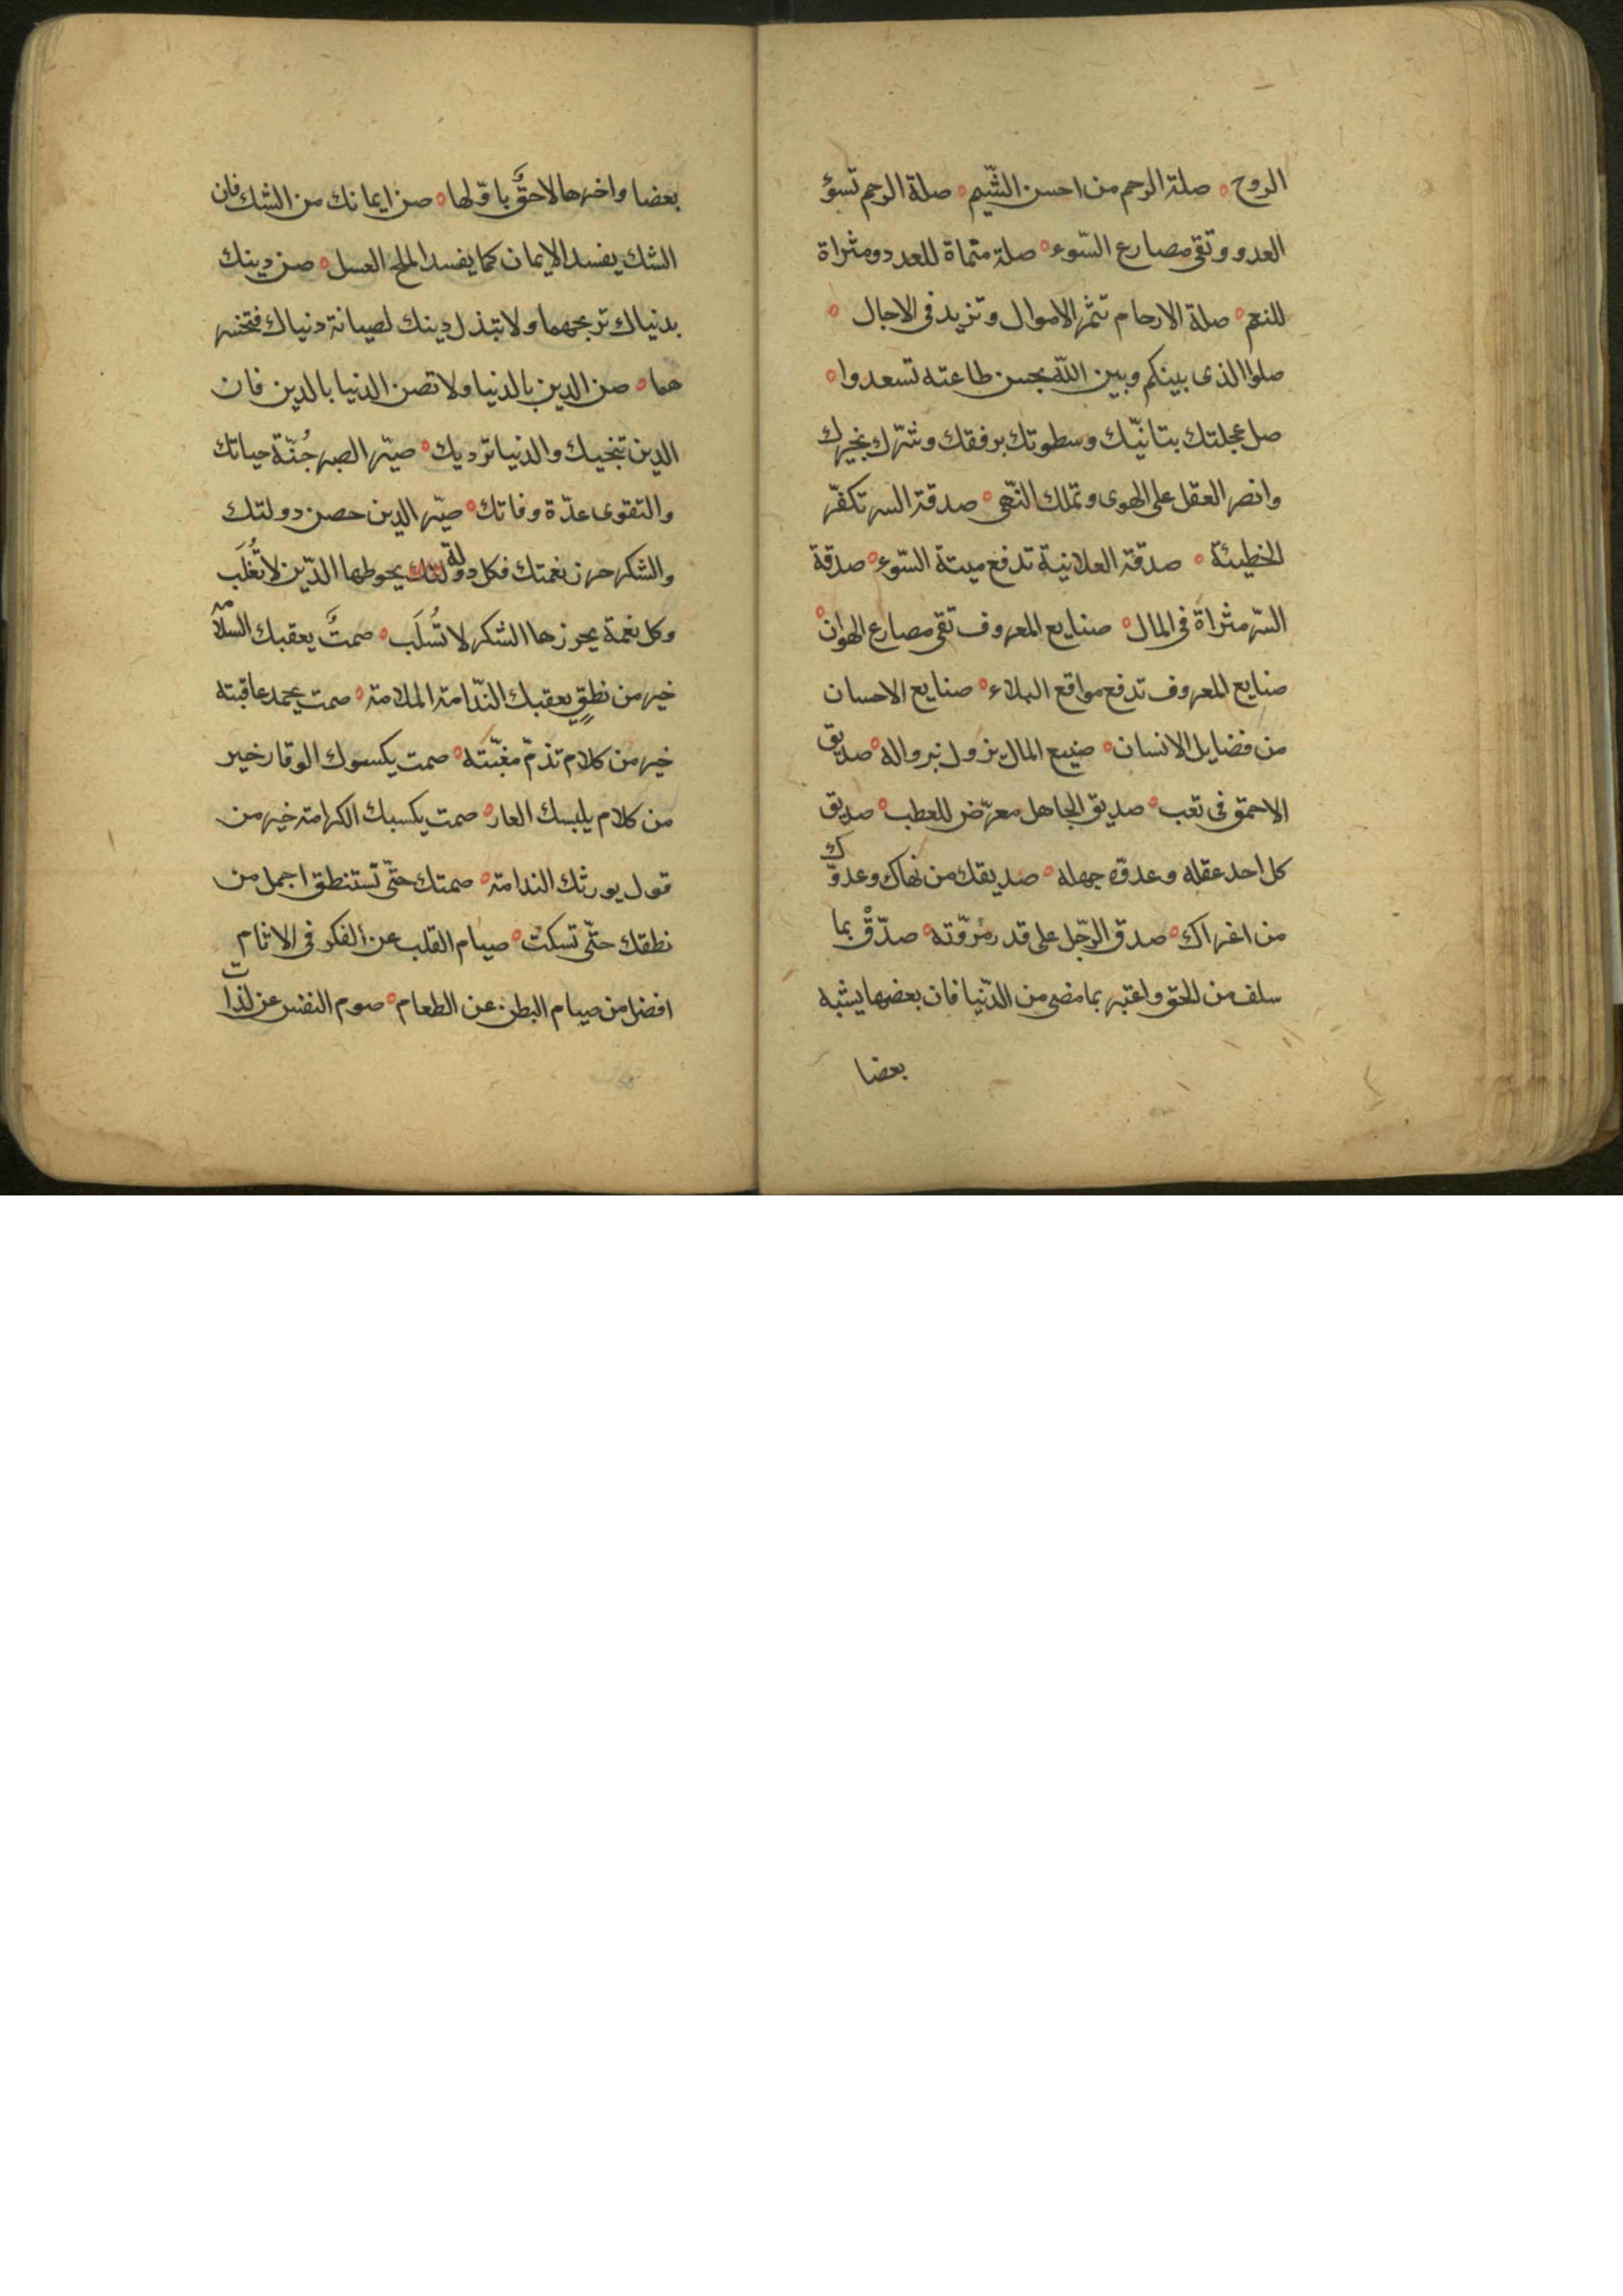 الروح ه صلة الرحم من احسن الشّيم ه صلة الرحم تسوؤ
العدو وتقى مصارع السّوء ه صلة منماة للعدد ومثراة
للنعم ه صلة الارحام تثمر الاموال وتزيد فى الاجال ه
صلوا الذى بينكم وبين اللّه بحسن طاعته تسعدوا ه
صل عجلتك بتانيّك وسطوتك برفقك وشرّك بخيرك
وانصر العقل على الهوى وتملك النّهى ه صدقة السر تكفّر
الخطيئة ه صدقة العلانية تدفع ميتة السّوء ه صدقة
السّر مثراة فى المال ه صنايع المعروف تقى مصارع الهوان ه
صنايع المعروف تدفع مواقع البلاء ه صنايع الاحسان
من فضايل الانسان ه صنيع المال يزول بزواله ه صديق
الاحمق فى تعب ه صديق الجاهل معرّض للعطب ه صديق
كل احد عقله وعدوّه جهله ه صديقك من نهاك وعدوّك
من اغراك ه صدق الرّجل على قدر مُروّته ه صدّقْ بما
سلف من الحق واعتبر بما مضى من الدّنيا فان بعضها يشبه
بعضا
بعضا واخرها لاحقٌ باوّلها ه صن ايمانك من الشك فان
الشك يفسد الايمان كما يفسد الملح العسل ه صن دينك
بدنياك تربحهما ولا تبذل دينك لصيانة دنياك فتخسر
هما ه صن الدين بالدنيا ولا تصن الدنيا بالدين فان
الدين تنجيك والدنيا ترديك ه صيّر الصبر جُنّة حياتك
والتقوى عدّة وفاتك ه صيّر الدين حصن دولتك
والشكر حرز نعمتك فكل دولة يحوطها الدّين لا تُغلَب
وكل نعمة يحوزها الشكر لا تُسلَب ه صمتٌ يعقبك السلامة
خير من نطقٍ يعقبك النّدامة الملامة ه صمت يحمد عاقبته
خير من كلام تذمّ مغبّته ه صمت يكسوك الوقار خير
من كلام يلبسك العار ه صمت يكسبك الكرامة خير من
قول يورثك الندامة ه صمتك حتّى تستنطق اجمل من
نطقك حتّى تسكت ه صيام القلب عن الفكر فى الاثام
افضل من صيام البطن عن الطعام ه صوم النفس عن لذات